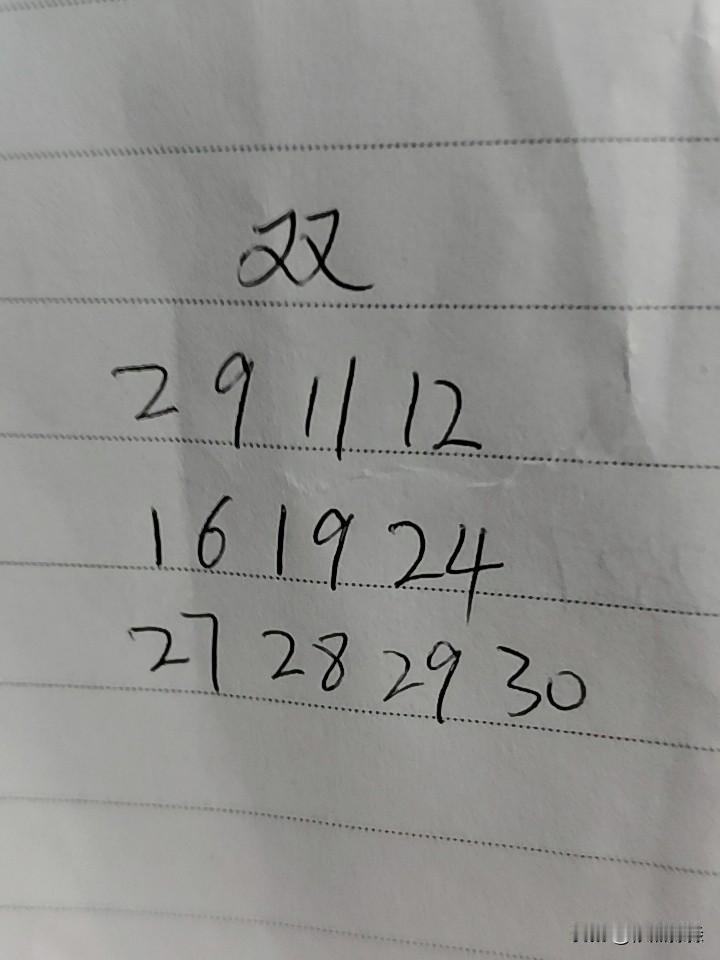 双
2 9 11 12
16 19 24
27 28 29 30